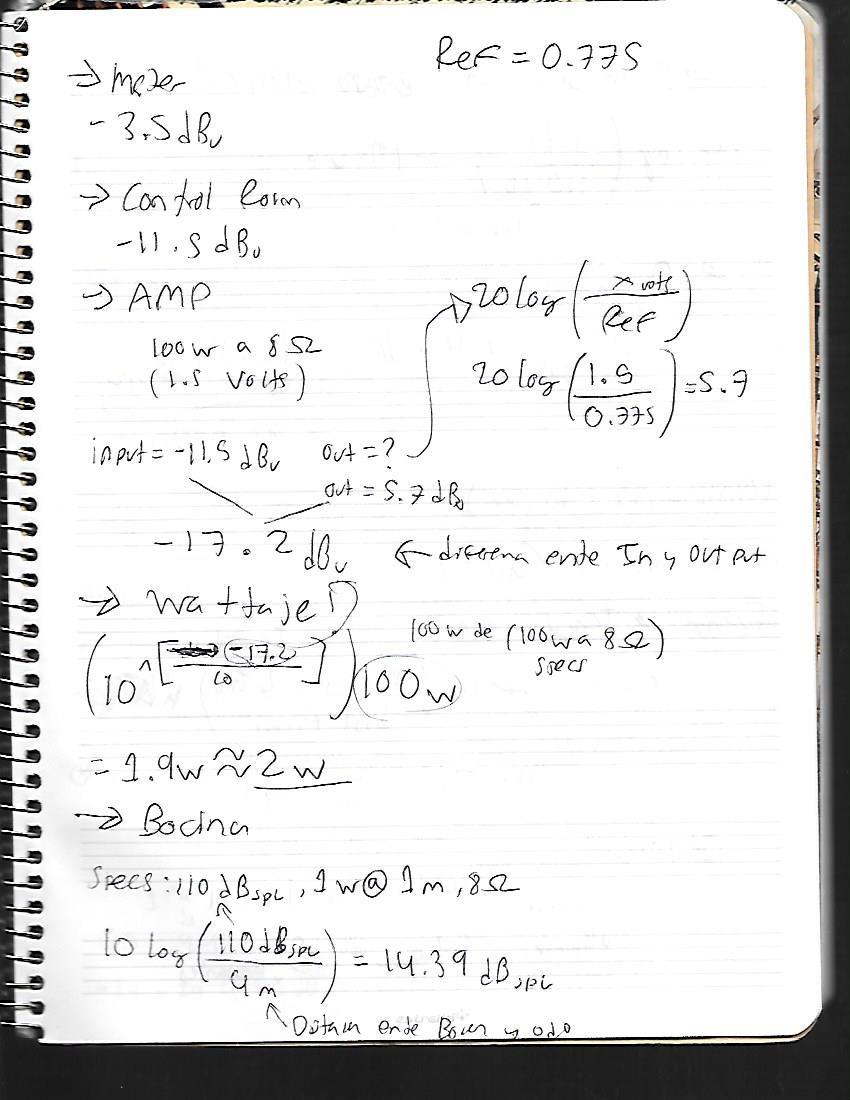 Ref = 0.775
→ Meter
- 3.5 dBu
→ Control Room
-11.5 dBu
→ AMP
100w a 8 Ω
(1.5 Volts)
20 log (x volts / Ref)
20 log (1.5 / 0.775) = 5.7
input = -11.5 dBu out = ?
out = 5.7 dBu
-17.2 dBu ← diferena ente In y Output
→ Wattaje
(10^[-17.2 / 10]) 100w
100w de (100w a 8 Ω)
specs
= 1.9w ≈ 2w
→ Bocina
Specs: 110 dBspl, 1w@ 1m, 8Ω
10 log (110 dBspl / 4m) = 14.39 dBspl
ente y oido